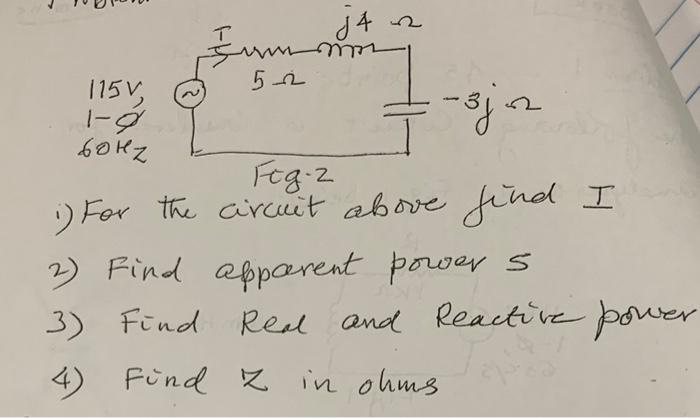 I
j4 Ω
5 Ω
115V,
1-Ø
60Hz
-3j Ω
Fig-2
1) For the circuit above find I
2) Find apparent power S
3) Find Real and Reactive power
4) Find Z in ohms